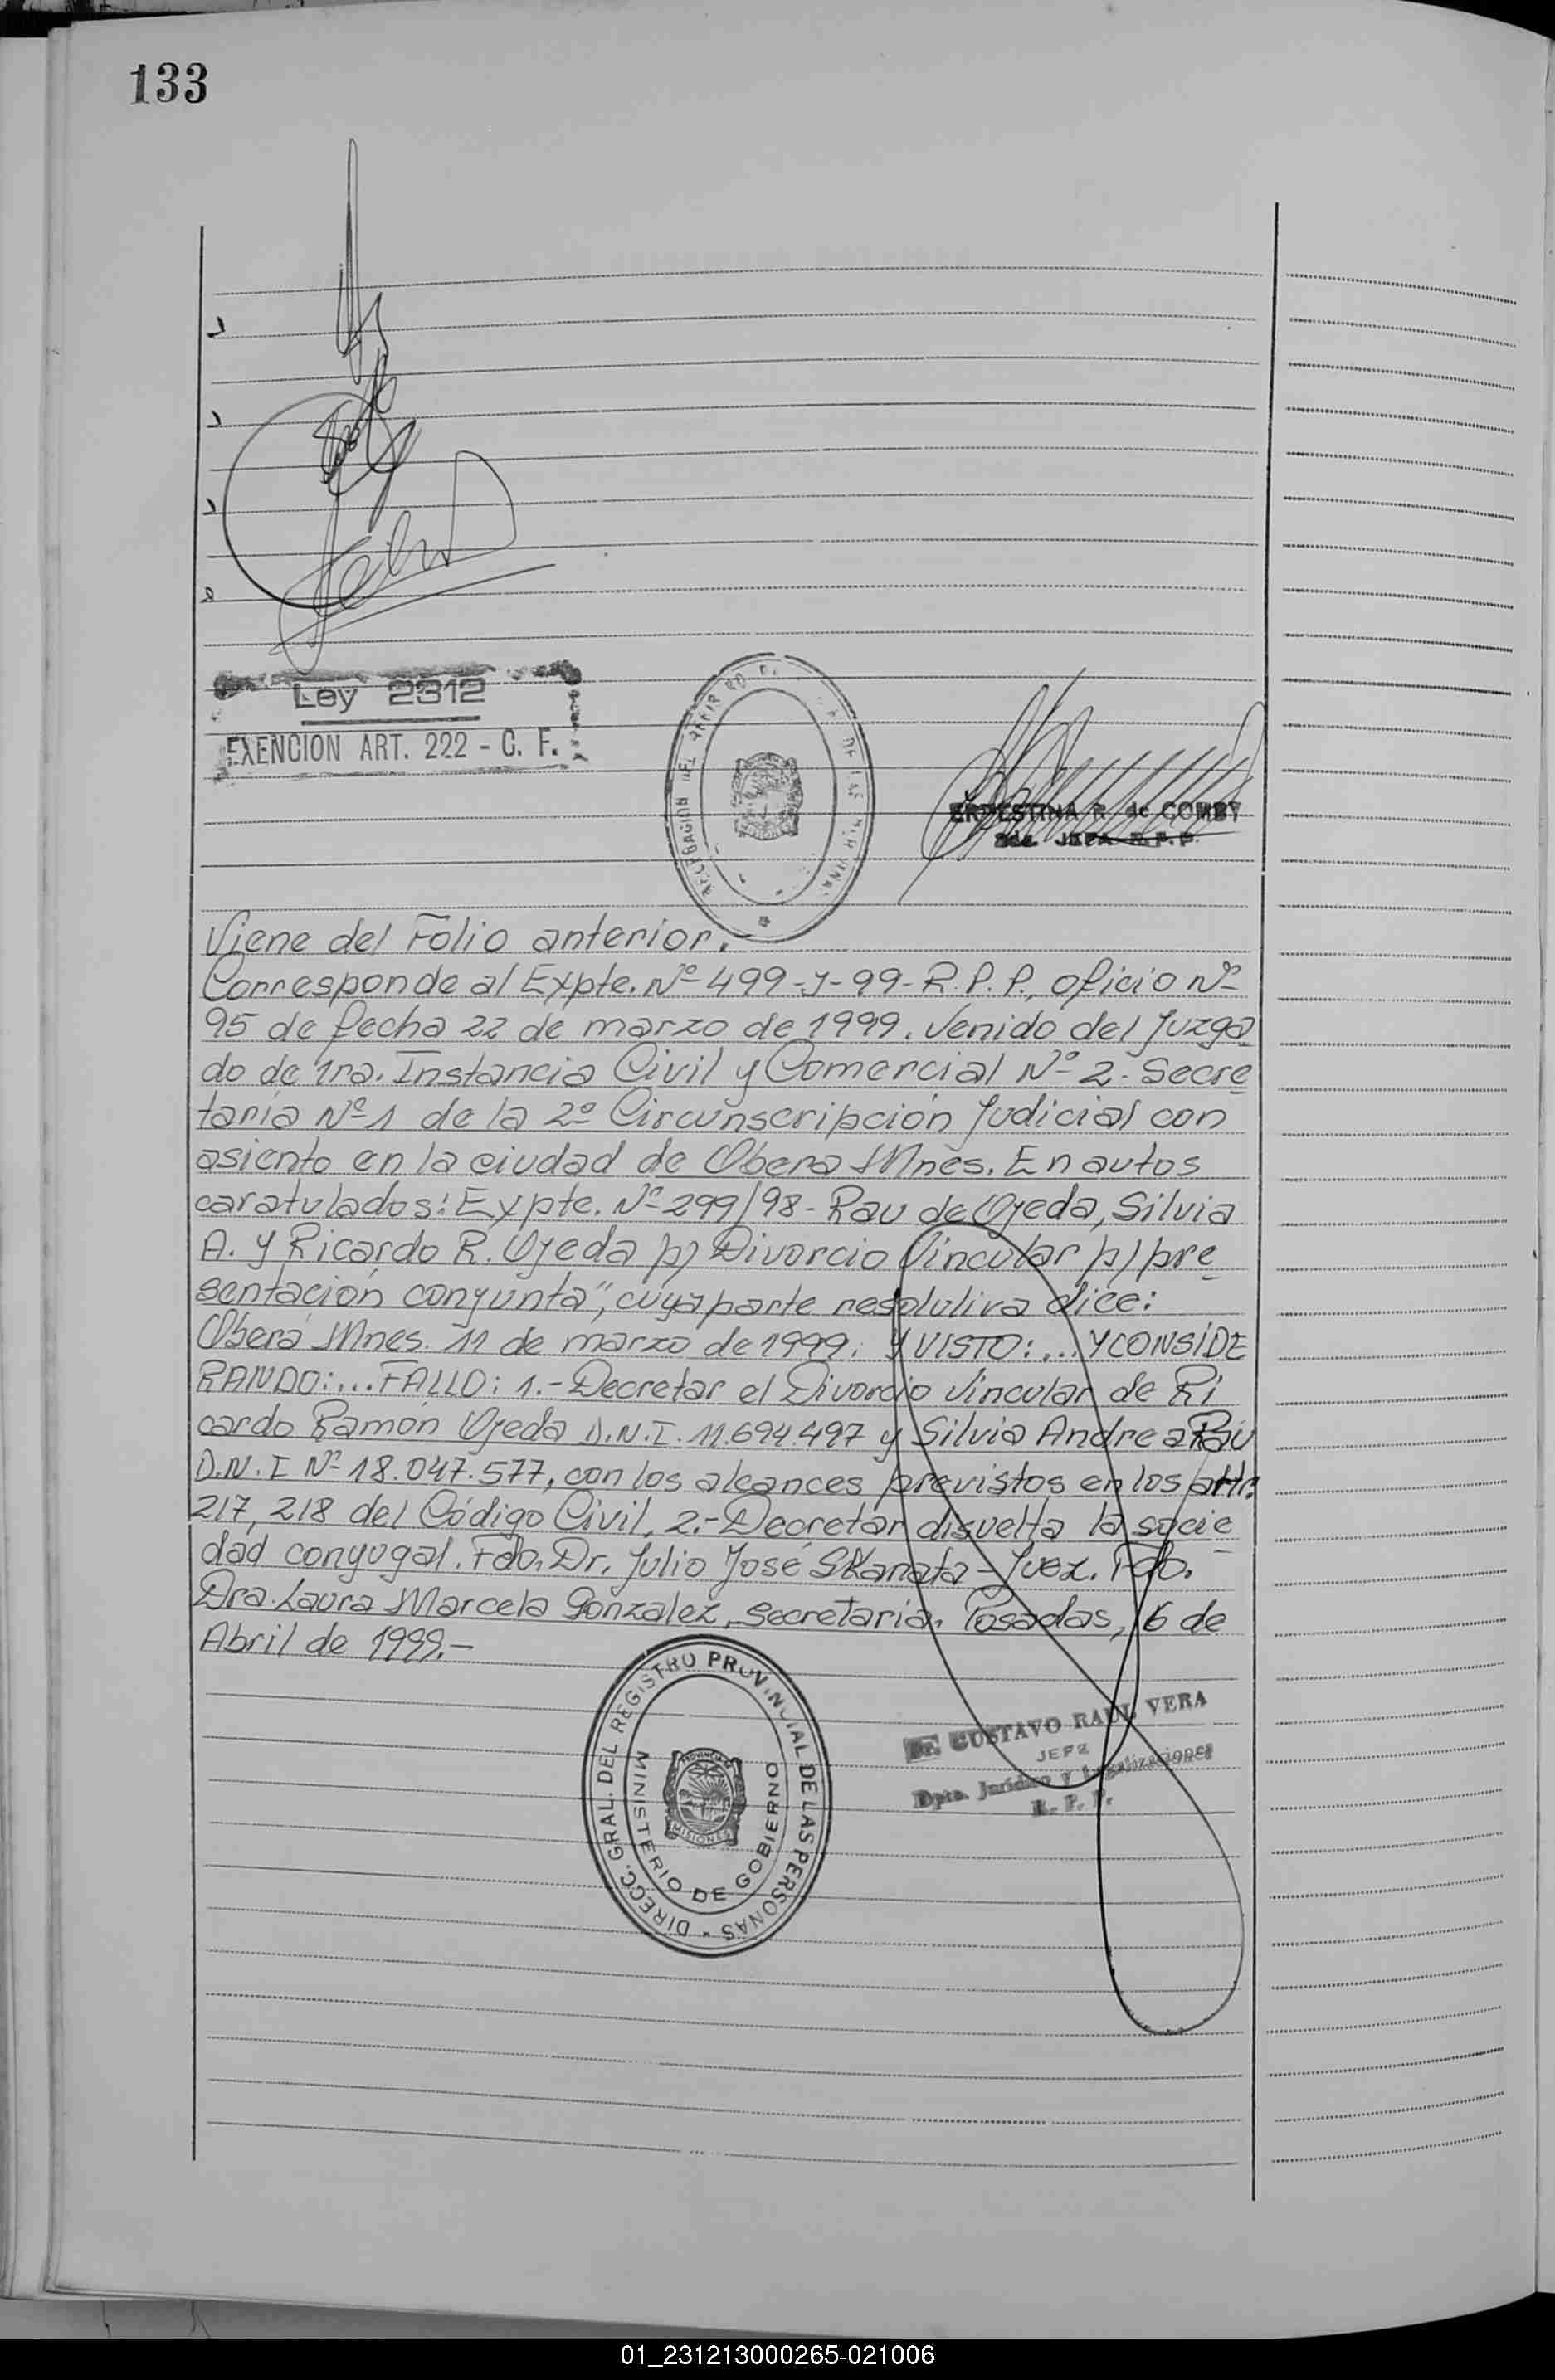 133
Ley 2312
EXENCION ART. 222 - C. F.
ERNESTINA R. de COMBY
JEFA R.P.P.
Viene del Folio anterior.
Corresponde al Expte. Nº 499-J-99-R.P.P., oficio Nº
95 de fecha 22 de marzo de 1999. Venido del Juzga
do de 1ra. Instancia Civil y Comercial Nº 2 - Secre
taría Nº 1 de la 2º Circunscripción Judicial con
asiento en la ciudad de Oberá Mnes. En autos
caratulados: Expte. Nº 299/98 - Rau de Ojeda, Silvia
A. y Ricardo R. Ojeda p/ Divorcio Vincular p/ pre
sentación conjunta", cuya parte resolutiva dice:
Oberá Mnes. 11 de marzo de 1999. Y VISTO:... Y CONSIDE
RANDO:... FALLO: 1.- Decretar el Divorcio Vincular de Ri
cardo Ramón Ojeda D.N.I. 11.694.497 y Silvia Andrea Rau
D.N.I Nº 18.047.577, con los alcances previstos en los artts.
217, 218 del Código Civil. 2.- Decretar disuelta la socie
dad conyugal. Fdo. Dr. Julio José SKanata - Juez. Fdo.
Dra. Laura Marcela Gonzalez, Secretaria. Posadas, 16 de
Abril de 1999.-
DIRECC. GRAL. DEL REGISTRO PROVINCIAL DE LAS PERSONAS
MINISTERIO DE GOBIERNO
MISIONES
Dr. GUSTAVO RAUL VERA
JEFE
Dpto. Jurídico y Legalizaciones
R. P. P.
01_231213000265-021006